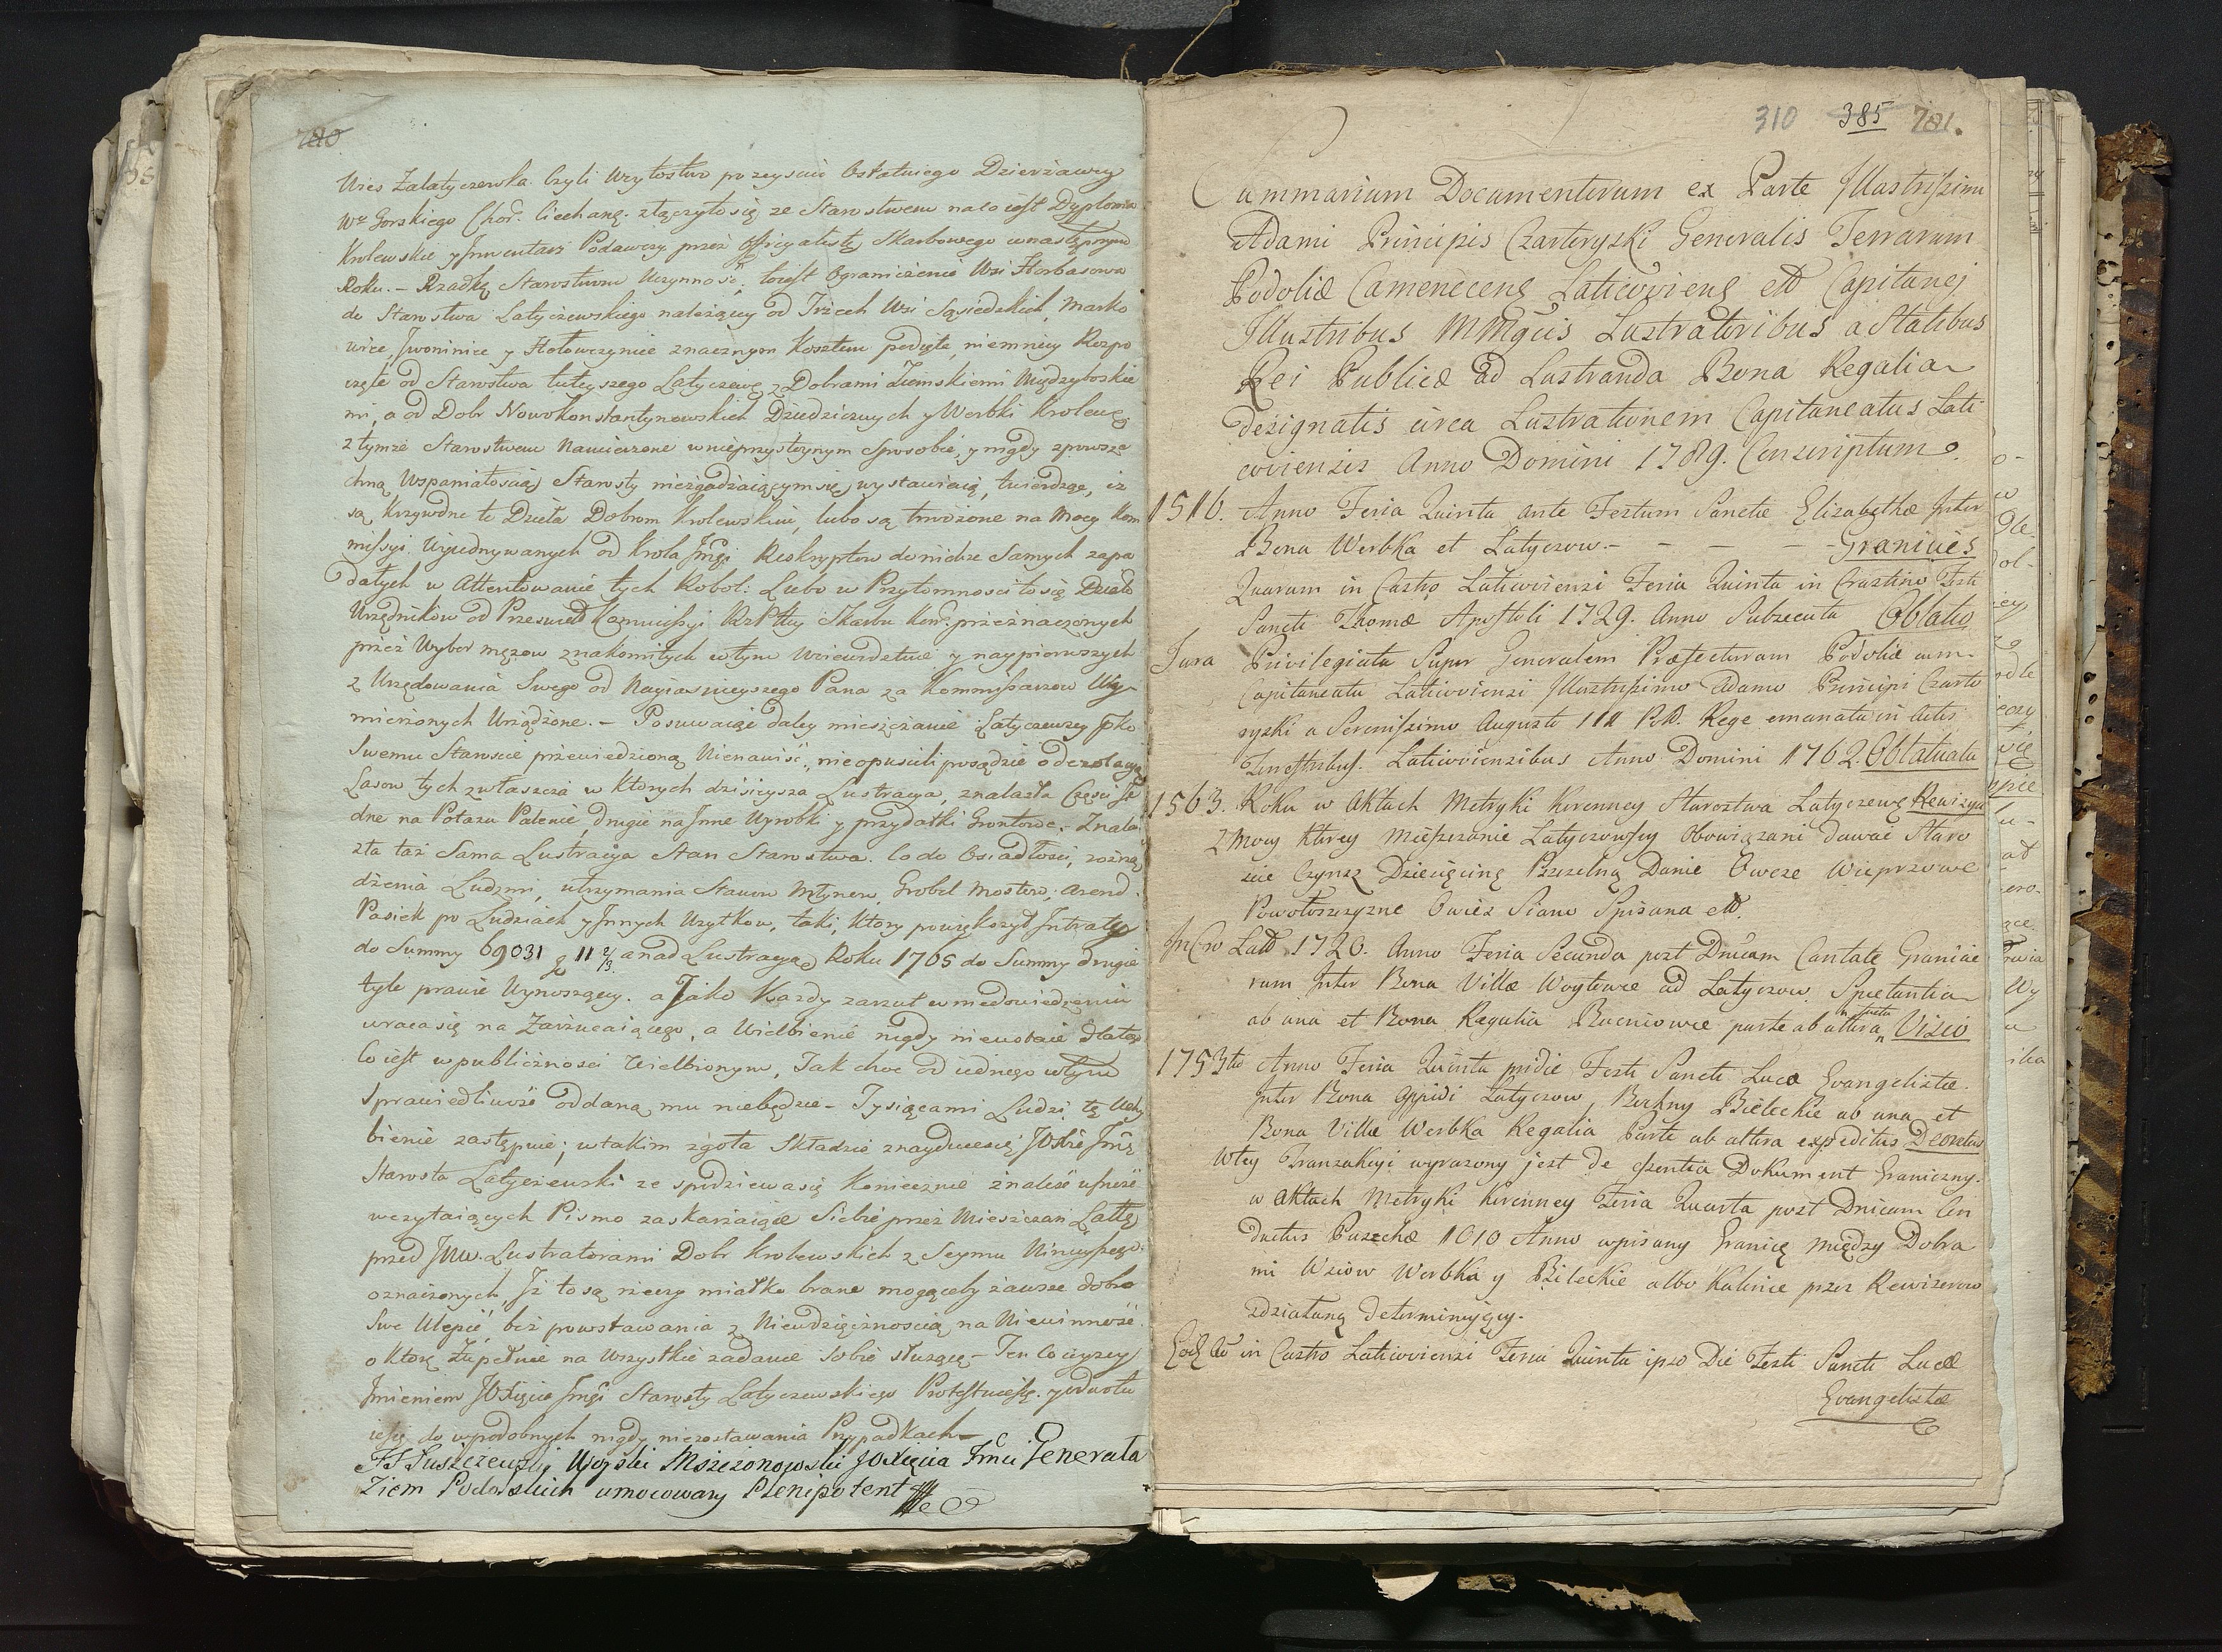 780
Wies Zalatyczowka czyli Woytostwo po zeysciu Ostatniego Dzierżawcy
Wo Gorskiego Chor. Ciechang. złączyło się ze Starostwem na co iest Dyploma
Krolewskie y Jnwentarz Podawczy przez Officyalistę Skarbowego w następnym
Roku. – Rządką Starostwu Uczynność, toiest Ograniczenie Wsi Horbasowa
do Starostwa Latyczewskiego należącey od Trzech Wsi Sąsiedzkich, Marko
wiec, Jwoninice y Hołowczynice znacznym kosztem podięte, niemniey Rozpo
częte od Starostwa tuteyszego Latyczewg z Dobrami Ziemskiemi Międzyboskie
mi, a od Dobr Nowokonstantynowskich Dziedzicznych y Werbki Krolewg
z tymże Starostwem Namienione w nieprzystoynym sposobie, y nigdy z powsze
chną Wspaniałoscią Starosty niezgadzaiącym się wystawieniu, twierdząc, iż
są krzywdne te Dzieła Dobrom Krolewskim, lubo są tworzone na Mocy Kom
missyi Wyiednywanych od Krola Jmci Reskryptow do nichze Samych zapa
dałych w Attentowanie tych Robot: Lubo w Przytomnosci to się Działo
Urzędnikow od Przeswiet Kommissyi RzPttey Skarbu Kor. przeznaczonych
przez Wybor mężow znakomitych w tym Woiewodztwie y naypierwszych
z Urzędowania Swego od Nayiasnieyszego Pana za Kommissarzow Wy-
mierzonych Urządzone. – Posuwaiąc daley mieszczanie Latyczewscy pko
Swemu Staroscie przewiedzioną Nienawiść, nieopuscili posądzić o dezolacyą
Lasow tych zwłaszcza w ktorych dzisieysza Lustracya, znalazła Częsci Je
dne na Potażu Palenie, drugie na Jnne Wyrobki y przydatki Grontowe. – Znala
zła taż Sama Lustracya Stan Starostwa. Co do Osiadłosci, rozrzą
dzenia Ludzmi, utrzymania Stawow Młynow, Grobel Mostow, arend
Pasiek po Ludziach y Jnnych Użytkow, taki, ktory powiększył Jntratę
do Summy 69031 g 11 2/3 a nad Lustracyą Roku 1765 do Summy drugie
tyle prawie Wynoszącey. a Jako Każdy zarzut w niedowiedzeniu
wraca się na Zarzucaiącego, a Wielbienie nigdy nieustaie dla tego
Co iest w publicznosci Wielbionym, Tak choc od iednego w tym
Sprawiedliwość oddaną mu niebędzie – Tysiącami Ludzi tę Uchy
bienie zastąpnie; w takim zgoła Składzie znayduie się JOXże Jmć
Starosta Latyczewski ze spodziewa się koniecznie znaleść ufność
wczytaiących Pismo zaskarżaiące Siebie przez Mieszczan Latty
przed JWW. Lustratorami Dobr krolewskich z Seymu Ninieyszego
oznaczonych, Jż to są rzeczy miałko brane mogąceby zawsze dobro
Swe Ulepić, bez powstawania z Niewdzięcznoscią na Niewinność
o ktorą Zupełnie na Wszystkie zadanie Sobie służącą – Ten Co czyzey
Jmieniem JOXięcia Jmci Starosty Latyczewskiego Protestuie się. y udaie
ię się do wpodobnych nigdy niezostawania Przypadkach –
JJ Suszczewski Woyski Mozczonowski JOXięcia Jmci Generała
Ziem Podolskich umocowany Plenipotent
310 385 781.
Summarium Documentorum ex Parte Jllustrissimi
Adami Principis Czartoryski Generalis Terrarum
Podoliæ Camenecens Laticoviens ett Capitanej
Jllustribus MMgcis Lustratoribus a Statibus
Rei Publicæ ad Lustranda Bona Regalia
designatis circa Lustrationem Capitaneatus Lati
coviensis Anno Domini 1789. Conscriptum.
1516. Anno Feria Quinta ante Festum Sanctæ Elizabethæ Jnter
Bona Werbka et Latyczow. – – – – Granicies
Quarum in Castro Laticoviensi Feria Quinta in Crastino Festi
Sancti Thomæ Apostoli 1729. Anno Subsecuta Oblatio
Jura Privilegiata Super Generalem Præfecturam Podoliæ cum
Capitaneatu Laticoviensi Jllustrissimo Adamo Principi Czarto
ryski a Serenissimo Augusto III PoD. Rege emanata in Actis
Terrestribus. Laticoviensibus Anno Domini 1762. Oblatuata
1563. Roku w Aktach Metryki Koronney Starostwa Latyczewg Rewizya
z Mocy Ktorey Mieszczanie Latyczowscy Obowiązani dawać Staro
scie Czynsz Dziesięcinę Pszczelną Danie Owcze Wieprzowe
Powołoszczyzne Owies Siano Spisana ett.
In Cro Latt 1720. Anno Feria Secunda post Dnicam Cantate Granicie
rum Jnter Bona Villæ Woytowce ad Latyczow Spectantia
ab una et Bona Regalia Buсniowce parte ab altera, facta Visio
1753tio Anno Feria Quinta pridie Festi Sancti Lucæ Evangelistæ.
Jnter Bona Oppidi Latyczow, Bochny Bieleckie ab una, et
Bona Villæ Werbka Regalia Parte ab altera expeditus Decretus
W tey Tranzakcyi wyrazony jest de essentia Dokument Graniczny.
w Aktach Metryki Koronney Feria Quarta post Dnicam Con
ductus Paschæ 1610 Anno wpisany Granicę między Dobra
mi Wsiow Werbka y Bileckie albo Kalinie przez Rewizorow
zdziałaną determinujący.
Eodem in Castro Laticoviensi Feria Quinta ipso Die Festi Sancti Lucæ
Evangelistæ